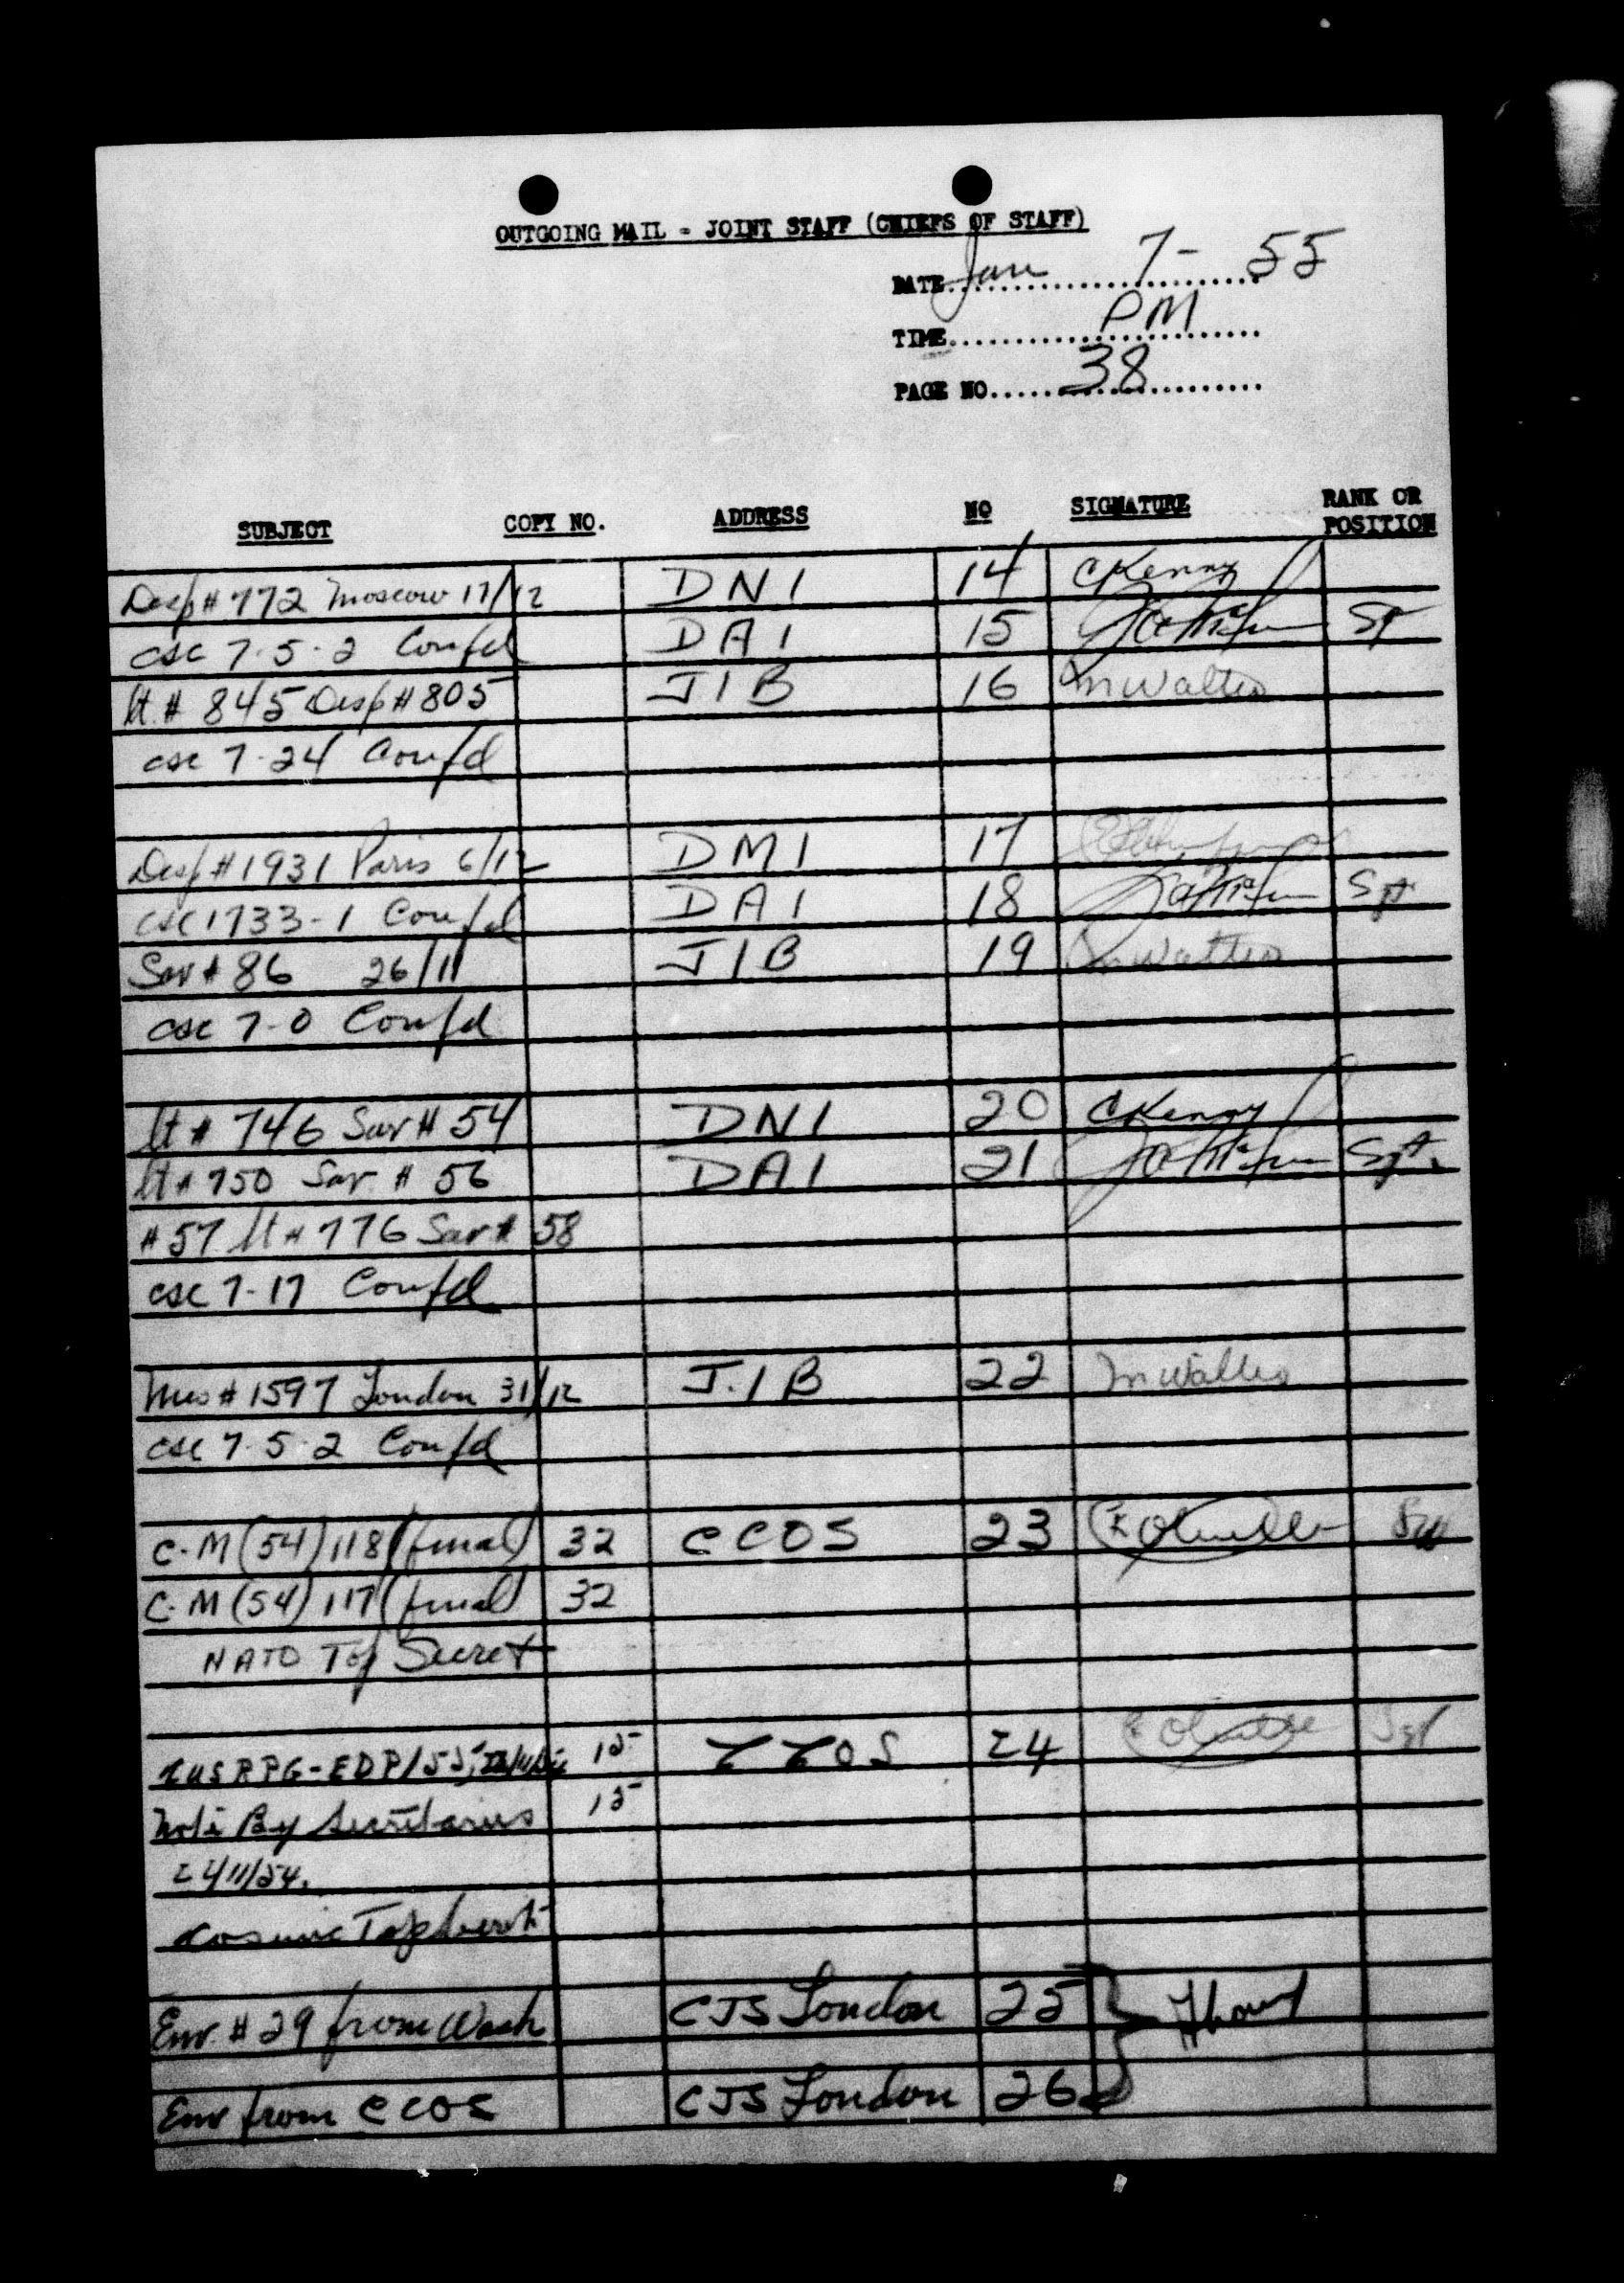 OUTGOING MAIL - JOINT STAFF (CHIEFS OF STAFF)
DATE Jan 7-55
TIME PM
PAGE NO 38
SUBJECT COPY NO. ADDRESS NO SIGNATURE RANK OR POSITION
Desp # 772 Moscow 17/12 DNI 14 C Kenny
csc 7.5.2 Confd DAI 15
lt. # 845 Desp # 805 JIB 16 M Walters
csc 7-24 Confd
Desp # 1931 Paris 6/12 DMI 17
csc 1733-1 Confd DAI 18 Sgt
Sav # 86 26/11 JIB 19 M Walters
csc 7-0 Confd
lt # 746 Sav # 54 DNI 20 C Kenny
lt # 750 Sav. # 56 DAI 21 Sgt.
# 57 lt # 776 Sav # 58
csc 7-17 Confd
# 1597 London 31/12 J.I B 22 M Walters
csc 7.5.2 Confd
C-M (54) 118 (final) 32 CCOS 23
C-M (54) 117 (final) 32
NATO Top Secret
CUSRPG-EDP/55, 15 CCOS 24 Sgt
Note By Secretaries 15
24/11/54.
Cosmic Top Secret
Env. # 29 from Wash CJS London 25
Env from CCOS CJS London 26